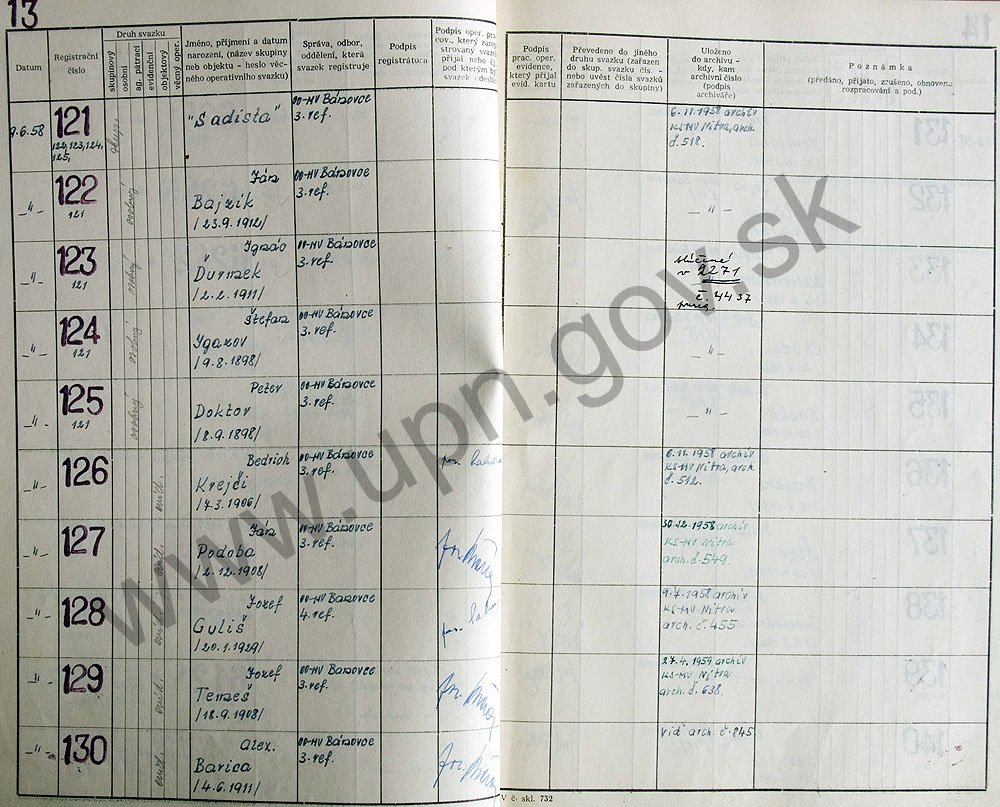 13
Datum
Registrační
číslo
Druh svazku
skupinový
osobní
ag. pátrací
evidenční
objektový
věcný oper.
Jméno, příjmení a datum
narození, (název skupiny
neb objektu - heslo věc-
ného operativního svazku)
Správa, odbor,
oddělení, která
svazek registruje
Podpis
registrátora
Podpis oper. prac-
cov., který zare-
strovaný svazek
přijal nebo
pod kterým by
svazek
Podpis
prac. oper.
evidence,
který přijal
evid. kartu
Převedeno do jiného
druhu svazku (zařazen
do skup. svazku čís. -
nebo uvést čísla svazků
zařazených do skupiny)
Uloženo
do archivu -
kdy, kam
archivní číslo
(podpis
archiváře)
Poznámka
(předáno, přijato, zrušeno, obnoveno
rozpracování a pod.)
9.6.58
121
122,123,124,
125,
"Sadista"
OO-MV Bánovce
3. ref.
6.11.1958 archív
KS-MV Nitra, arch.
č. 518.
-"-
122
121
osobný
Ján
Bajzík
/23.9.1912/
OO-MV Bánovce
3. ref.
-"-
-"-
123
121
osobný
Ignác
Ďurmek
/2.2.1911/
OO-MV Bánovce
3. ref.
v 2271
č. 4437
-"-
124
121
osobný
Štefan
Ygazov
/9.8.1898/
OO-MV Bánovce
3. ref.
-"-
-"-
125
121
osobný
Peter
Doktor
/8.9.1898/
OO-MV Bánovce
3. ref.
-"-
-"-
126
evid.
Bedrich
Krejči
/7.3.1906/
OO-MV Bánovce
3. ref.
6.11.1958 archív
KS-MV Nitra, arch.
č. 512.
-"-
127
evid.
Ján
Podoba
/2.12.1908/
OO-MV Bánovce
3. ref.
30.12.1958 archív
KS-MV Nitra
arch. č. 549.
-"-
128
evid.
Jozef
Guliš
/20.1.1929/
OO-MV Bánovce
4. ref.
9.7.1958 archív
KS-MV Nitra
arch. č. 455
-"-
129
evid.
Jozef
Temeš
/18.9.1908/
OO-MV Bánovce
3. ref.
27.4.1959 archív
KS-MV Nitra
arch. č. 638.
-"-
130
evid.
Alex.
Barica
/4.6.1911/
OO-MV Bánovce
3. ref.
viď arch. č. 845
V č. skl. 732
www.upn.gov.sk